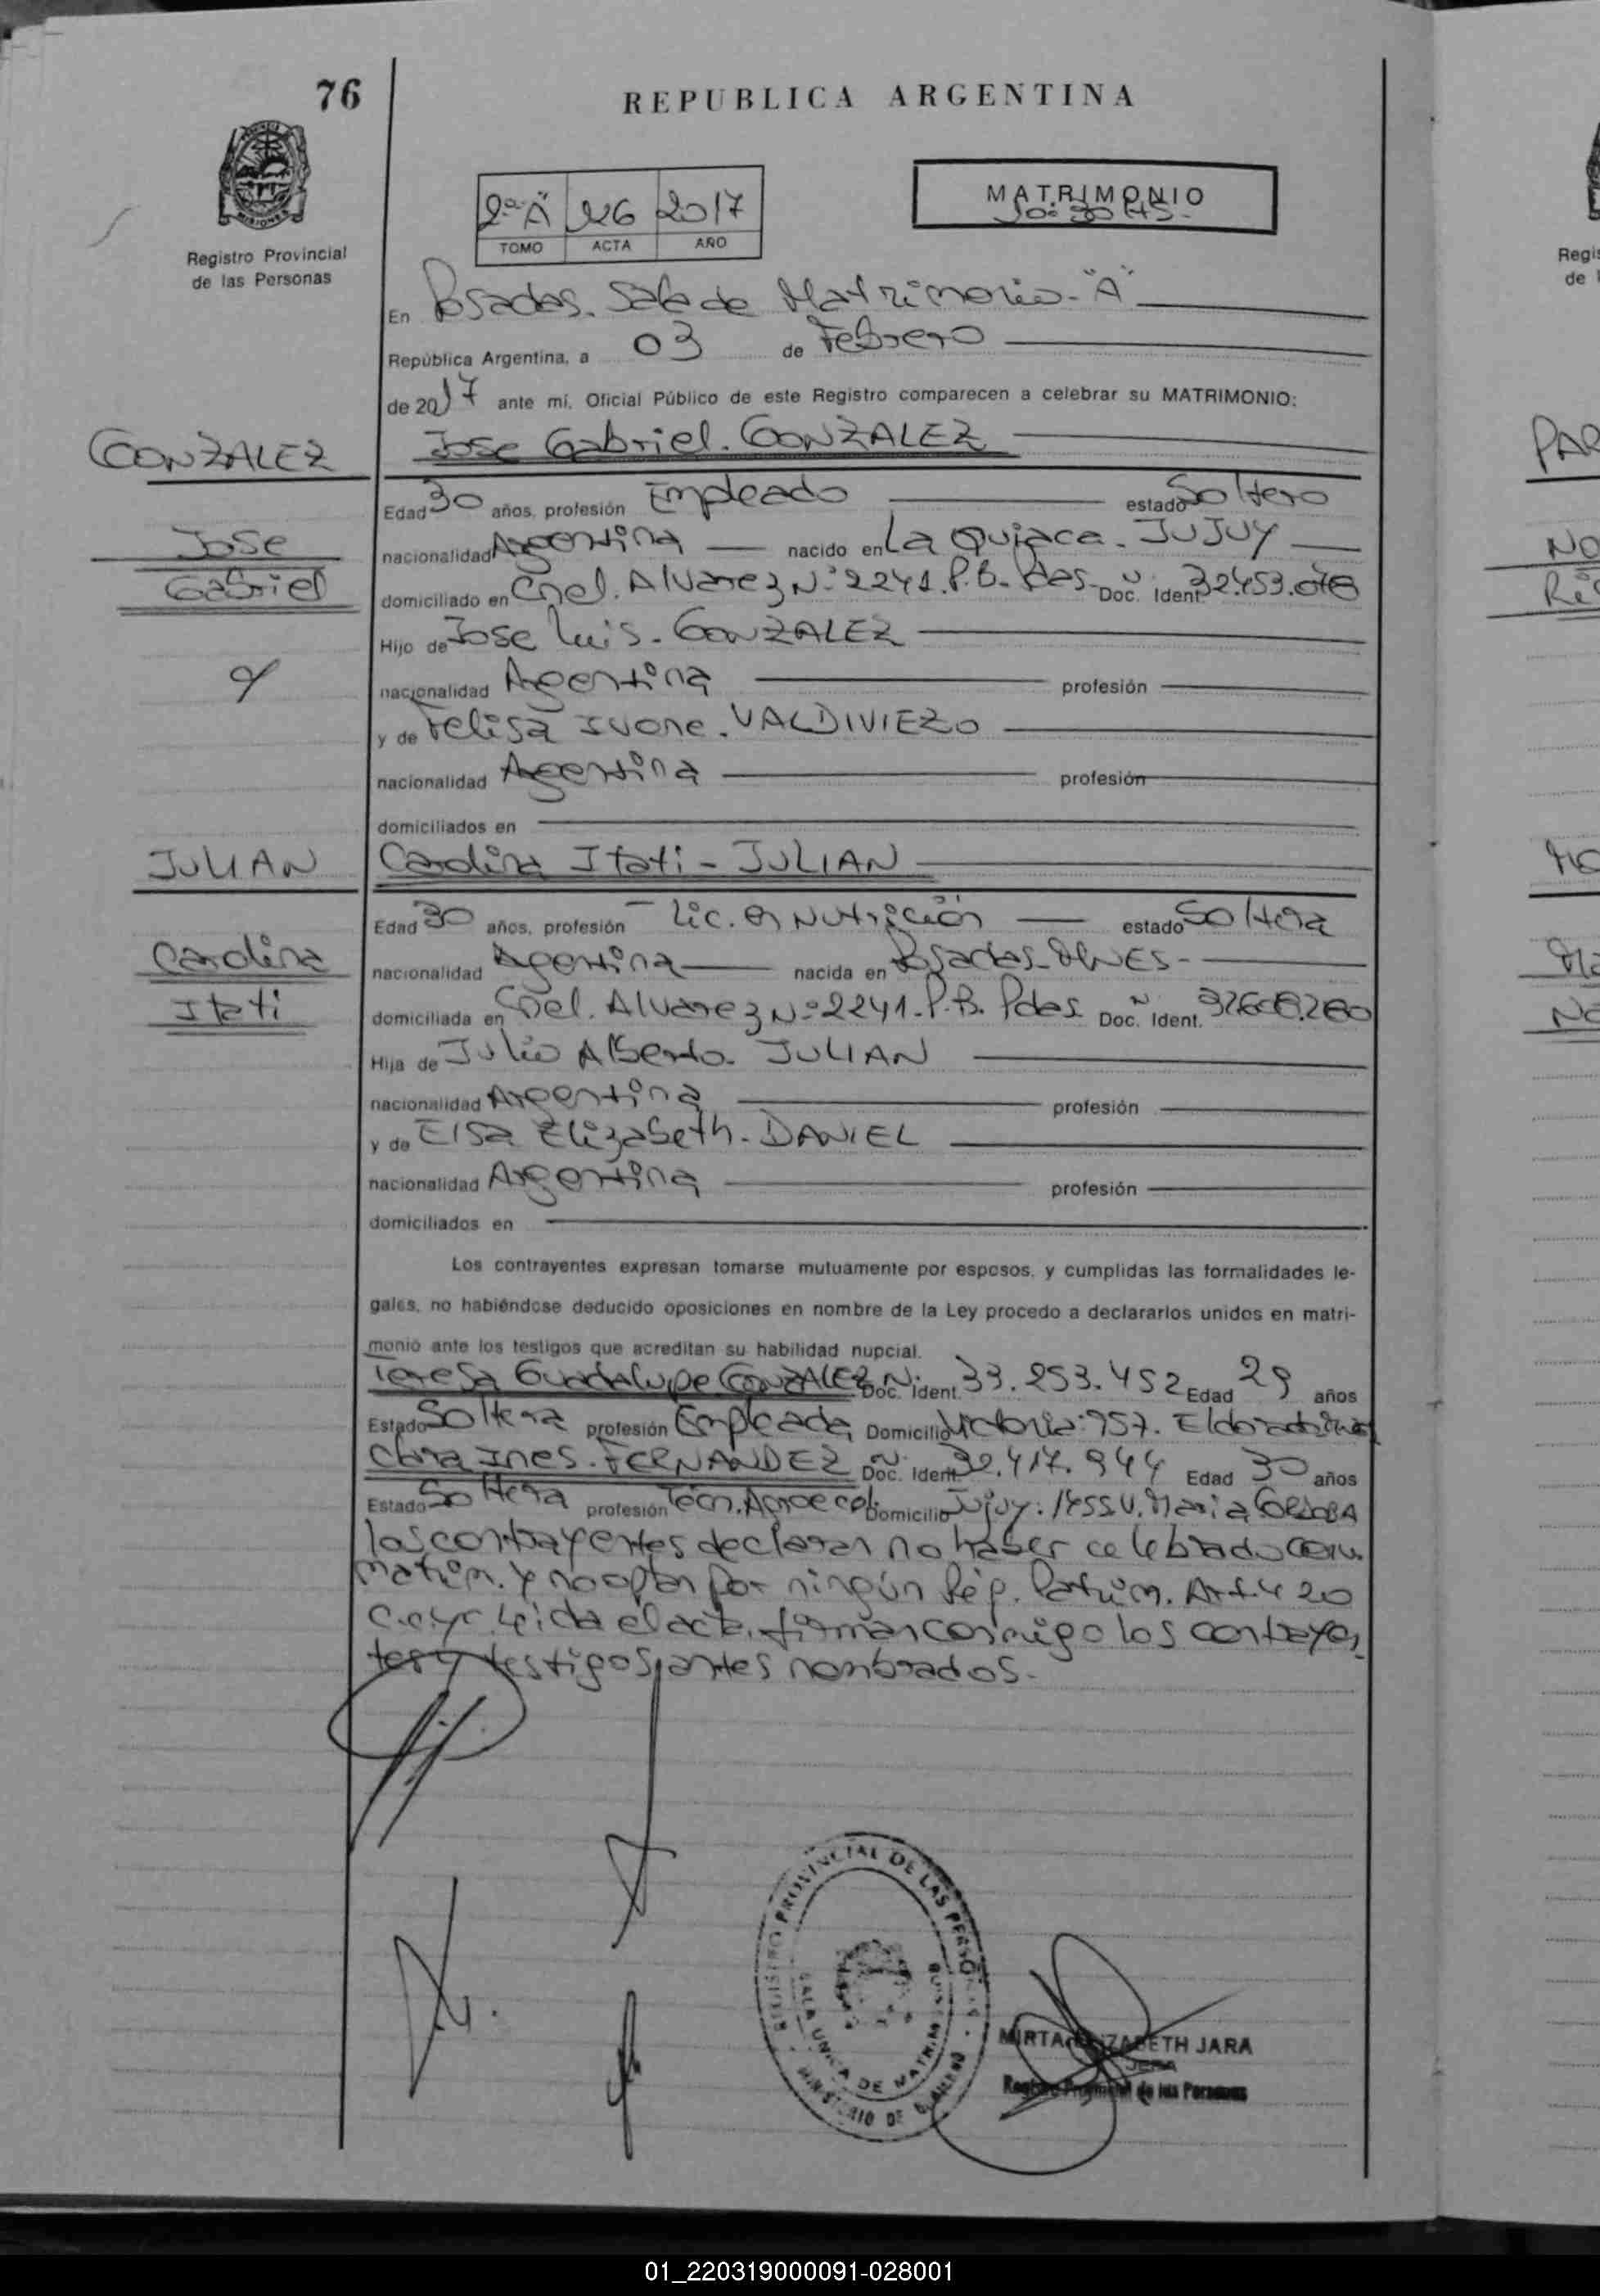 76
REPUBLICA ARGENTINA
Registro Provincial
de las Personas
2ª "A" 126 2017
TOMO ACTA AÑO
MATRIMONIO
10:30 HS.
En Posadas. Sala de Matrimonio - "A"
República Argentina, a 03 de Febrero
de 2017 ante mí, Oficial Público de este Registro comparecen a celebrar su MATRIMONIO:
GONZALEZ
Jose Gabriel. GONZALEZ
Edad 30 años, profesión Empleado estado Soltero
Jose
nacionalidad Argentina nacido en La Quiaca. JUJUY
Gabriel
domiciliado en Cnel. Alvarez Nº 2241. P.B. Pdas. Doc. Ident. 32.453.078
Hijo de Jose Luis. GONZALEZ
y
nacionalidad Argentina profesión
y de Felisa Ivone. VALDIVIEZO
nacionalidad Argentina profesión
domiciliados en
JULIAN
Carolina Itati - JULIAN
Edad 30 años, profesión Lic. en Nutrición estado Soltera
Carolina
nacionalidad Argentina nacida en Posadas - Mnes.
Itati
domiciliada en Cnel. Alvarez Nº 2241. P.B. Pdas Doc. Ident.
Hija de Julio Alberto. JULIAN
nacionalidad Argentina profesión
y de Elsa Elizabeth. DANIEL
nacionalidad Argentina profesión
domiciliados en
Los contrayentes expresan tomarse mutuamente por esposos, y cumplidas las formalidades le-
gales, no habiéndose deducido oposiciones en nombre de la Ley procedo a declararlos unidos en matri-
monio ante los testigos que acreditan su habilidad nupcial.
Teresa Guadalupe GONZALEZ Doc. Ident. 33.253.452 Edad 29 años
Estado Soltera profesión Empleada Domicilio Victoria: 957. Eldorado
Clara Ines. FERNANDEZ Doc. Ident. 32.417.944 Edad 30 años
Estado Soltera profesión Tecn. Agroecol. Domicilio Jujuy: 1455 V. Maria CORDOBA
los contrayentes declaran no haber celebrado conv.
matrim. y no optan por ningún Rég. Patrim. Art. 420
C.C.y C. Leida el acta, firman conmigo los contrayen
tes y testigos antes nombrados.
REGISTRO PROVINCIAL DE LAS PERSONAS
SALA UNICA DE MATRIM
MINISTERIO DE GOBIERNO
MIRTA ELIZABETH JARA
JEFA
Registro Provincial de las Personas
01_220319000091-028001